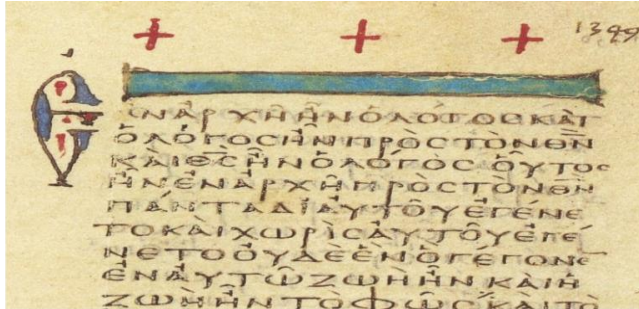 ΕΝΑΡΧΗΗΝΟΛΟΓΟϹΚΑΙ
ΟΛΟΓΟϹΗΝΠΡΟϹΤΟΝΘ̅Ν̅
ΚΑΙΘ̅Ϲ̅ΗΝΟΛΟΓΟϹΟΥΤΟϹ
ΗΝΕΝΑΡΧΗΠΡΟϹΤΟΝΘ̅Ν̅
ΠΑΝΤΑΔΙΑΥΤΟΥΕΓΕΝΕ
ΤΟΚΑΙΧΩΡΙϹΑΥΤΟΥΕΓΕ
ΝΕΤΟΟΥΔΕΕΝΟΓΕΓΟΝΕ
ΕΝΑΥΤΩΖΩΗΗΝΚΑΙΗ
ΖΩΗΗΝΤΟΦΩϹΚΑΙΤΟ